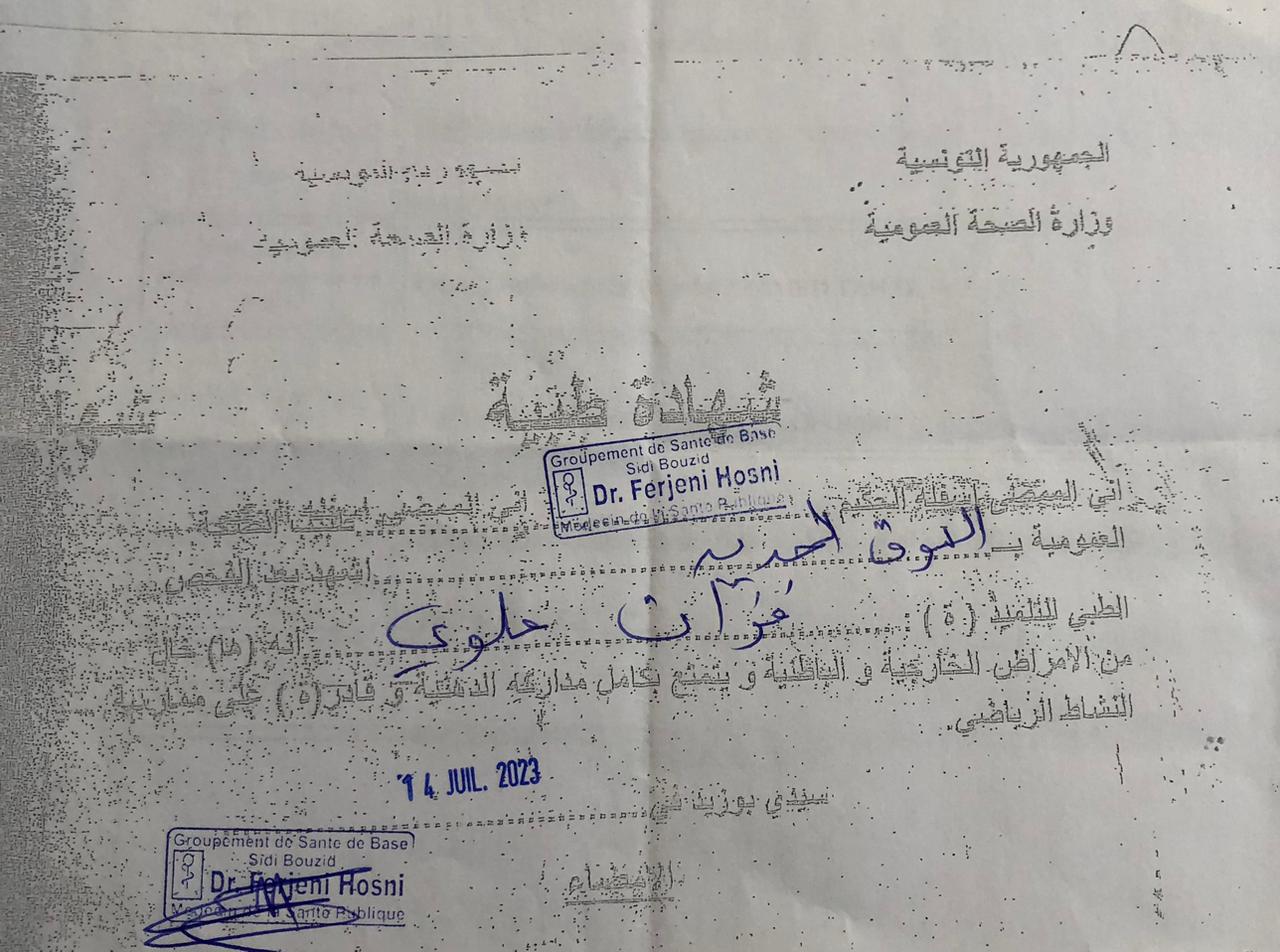 الجمهورية التونسية
وزارة الصحة العمومية
وزارة الصحة العمومية
شهادة طبية
Groupement de Sante de Base
Sidi Bouzid
Dr. Ferjeni Hosni
Médecin de la Santé Publique
اني الممضي اسفله الحكيم
العمومية بـ السوق الجديد اشهد بعد الفحص
الطبي للتلميذ (ة) : فرات علوي انه (ها) خال
من الامراض الخارجية و الباطنية و يتمتع بكامل مداركه الذهنية و قادر(ة) على ممارسة
النشاط الرياضي.
14 JUIL. 2023
سيدي بوزيد في
Groupement de Sante de Base
Sidi Bouzid
Dr. Ferjeni Hosni
Médecin de la Santé Publique
الامضاء